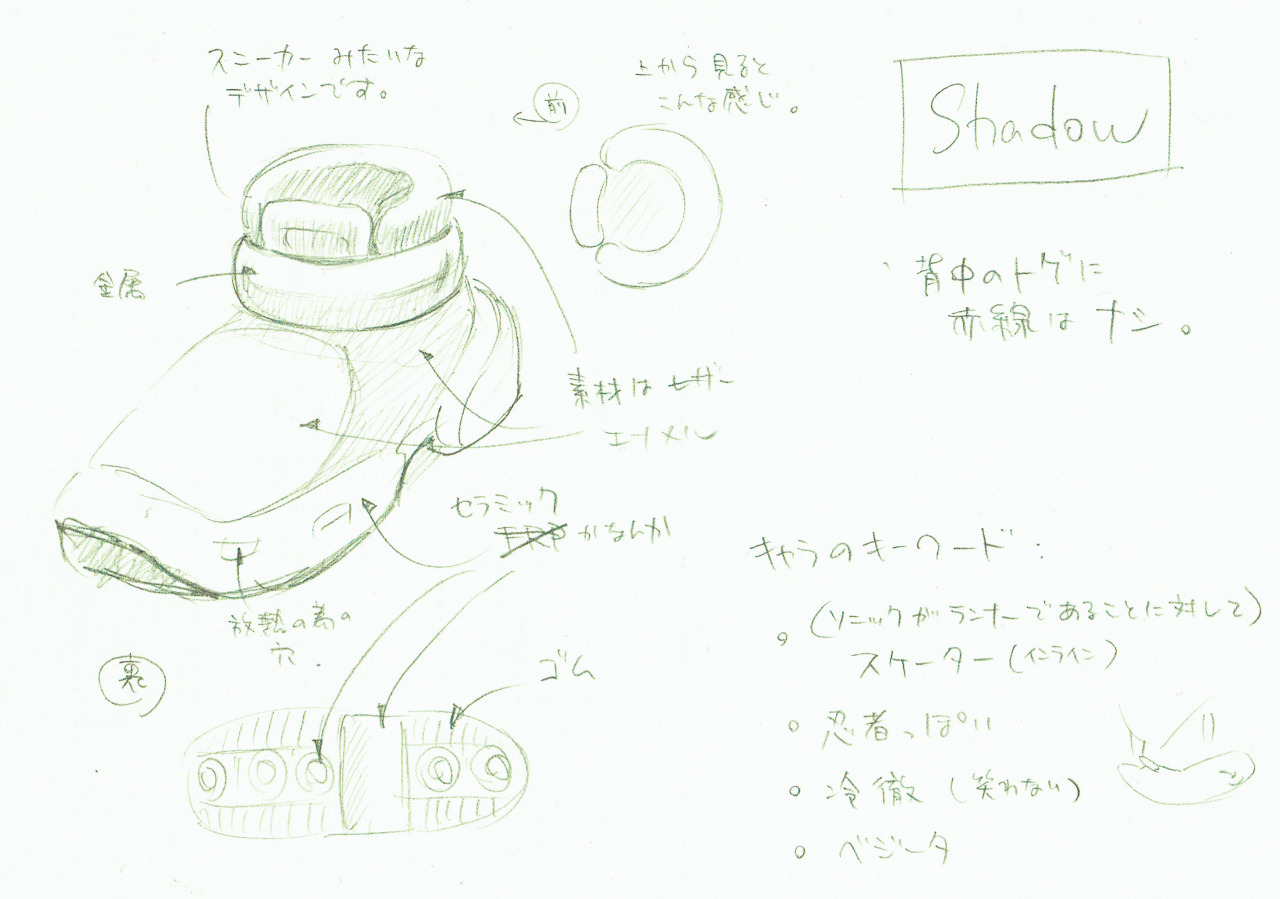 スニーカー みたいな
デザインです。
前
上から見ると
こんな感じ。
Shadow
金属
背中のトゲに
赤線は ナシ。
素材は レザー
エナメル
セラミック
かなんか
放熱の為の
穴.
裏
ゴム
キャラのキーワード:
(ソニックがランナーであることに対して)
スケーター(インライン)
忍者っぽい
冷徹 (笑わない)
ベジータ